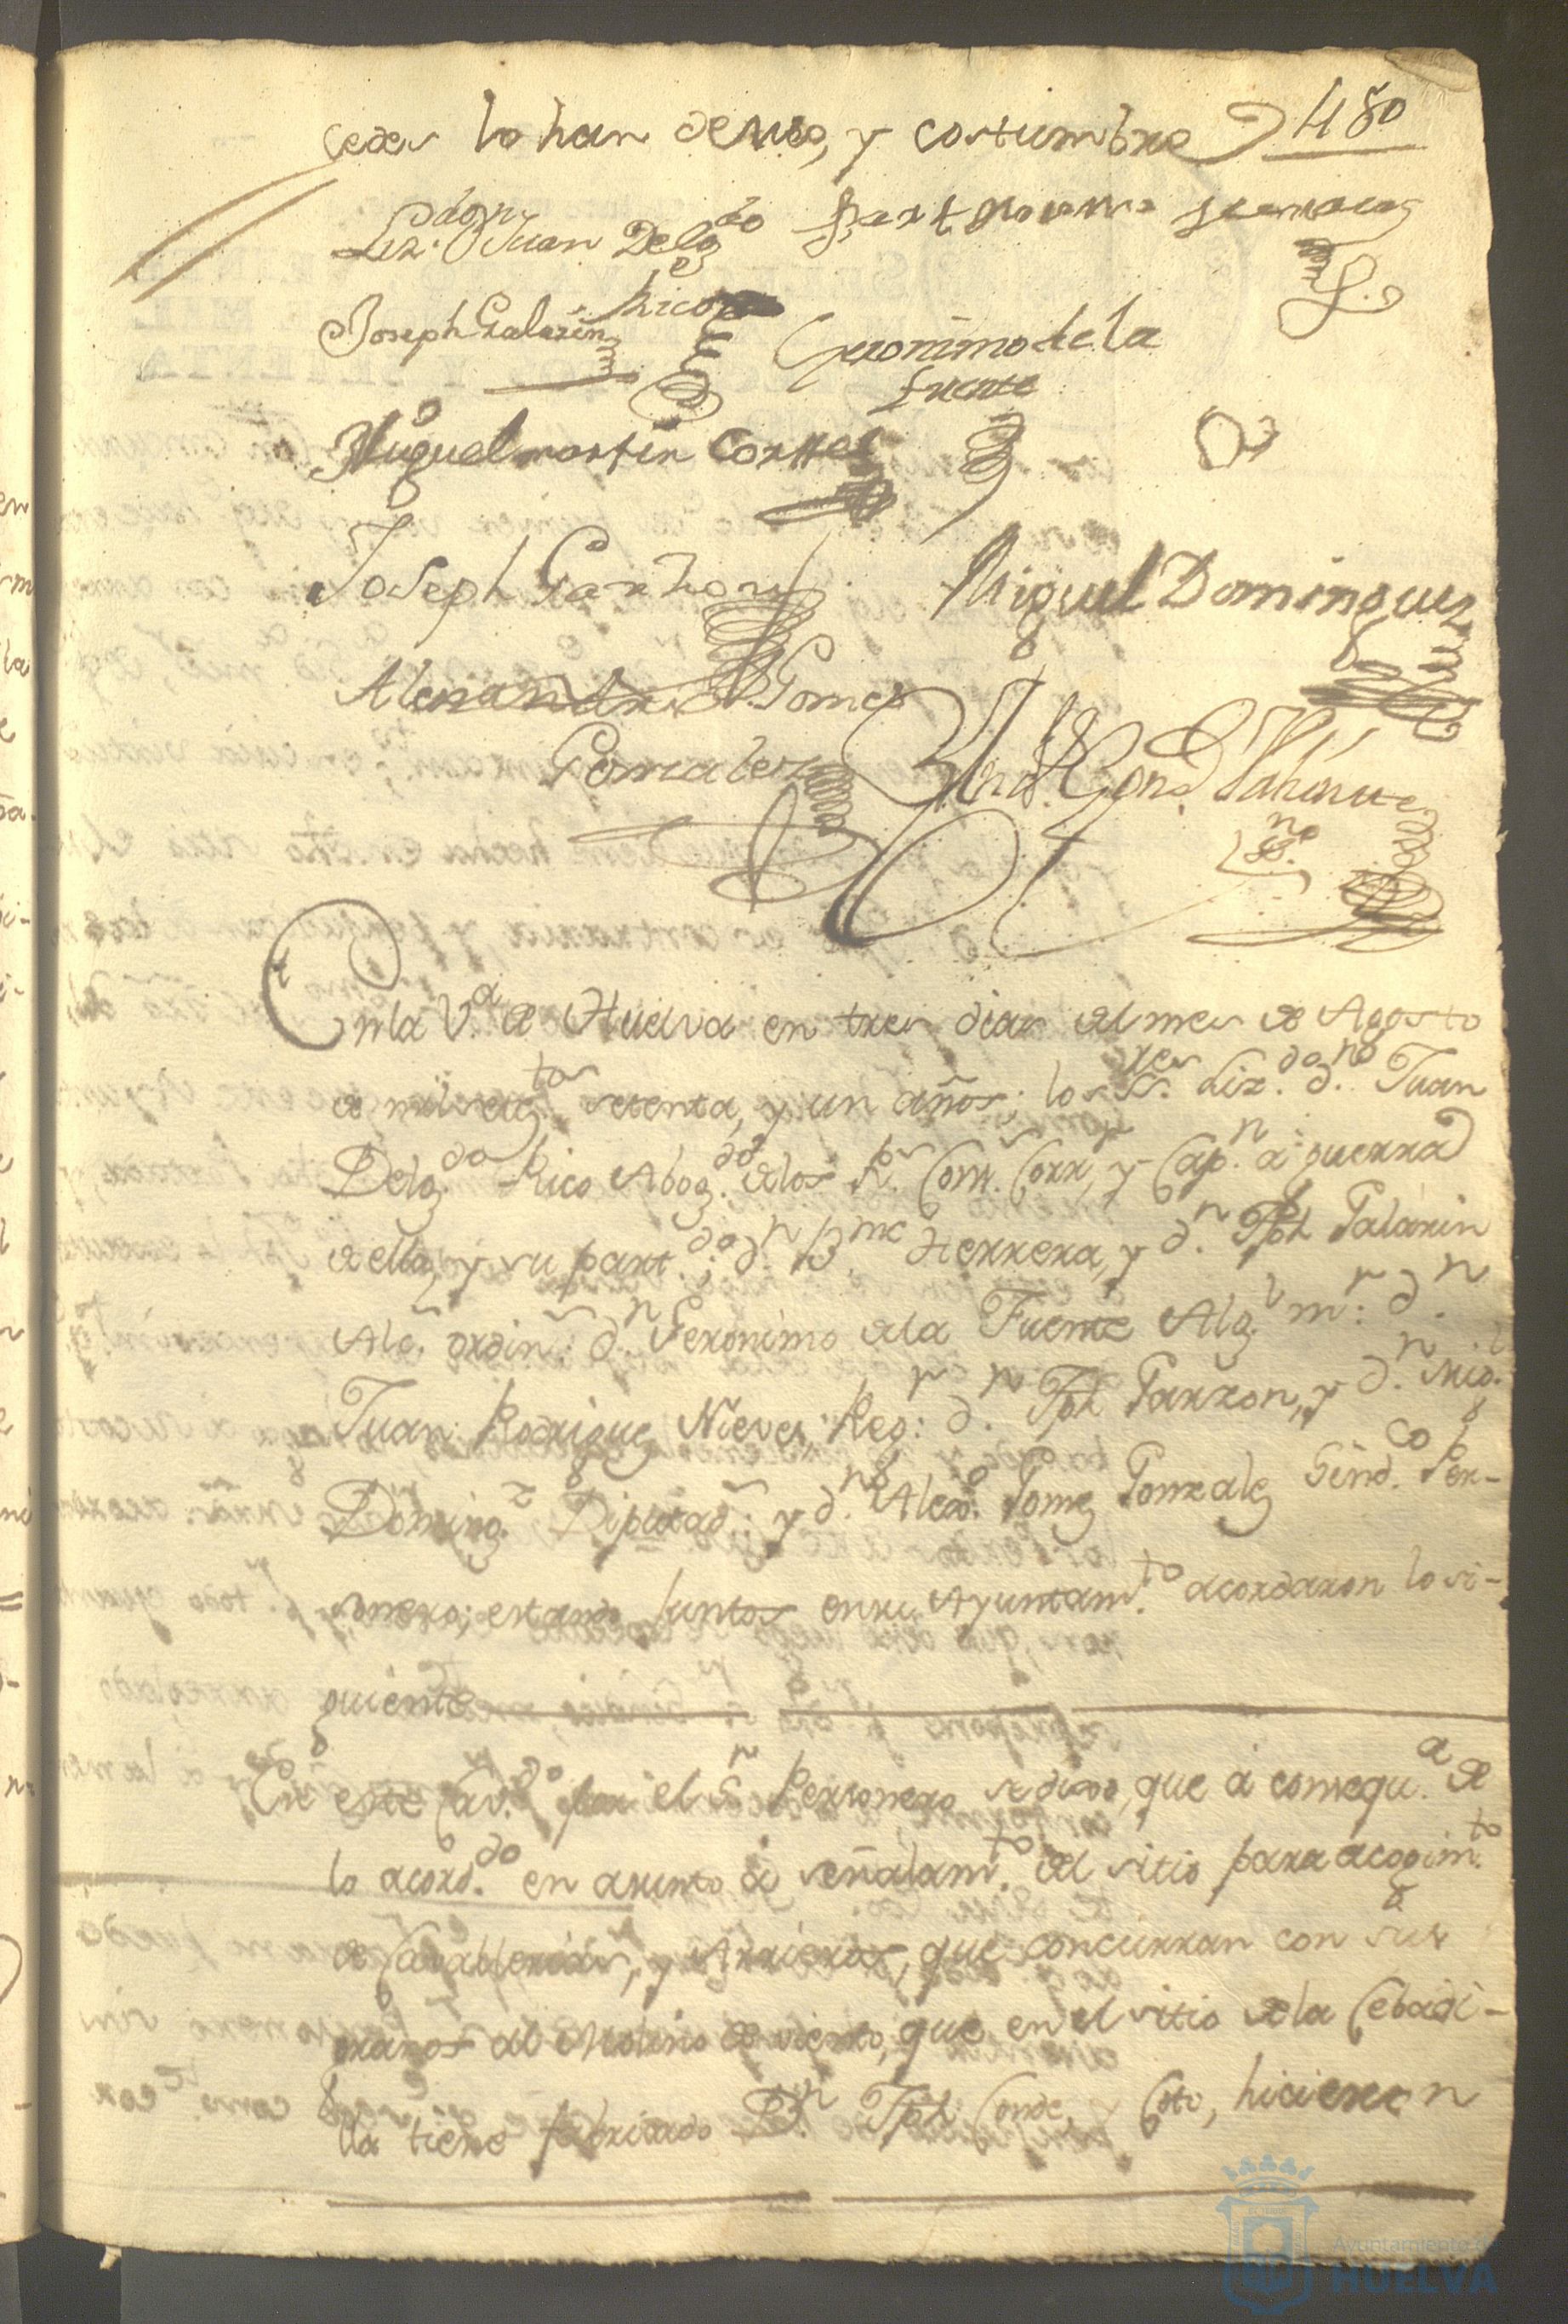 cedes lo han de uso, y costumbre 480
Liz.do d.n Juan Delg.do
Rico
Joseph Galazin
Geronimo de la
fuente
Miguel martin Corttes
Joseph Garzon
Miguel Dominguez
Alexandro Gomes
Gonzalez
En la V.a de Huelva en tres dias del mes de Agosto
de mil set.tos setenta, y un años; los SS.res Liz.do d.n Juan
Delg.do Rico Abog.do de los R.s Cons. Corr.r y Cap.n a guerra
de ella, y su part.do; d.n B.me Herrera, y d.n Jph Galazin
Alc. ordin.s d.n Geronimo de la Fuente Alg.l m.r d.n
Juan Rodriguez Nieves Reg.r d.n Jph Garzon, y d.n Mig.l
Doming.z Diputad.s y d.n Alex.o Gomez Gonzalez Sind.co Per-
sonero; estando Juntos en su Ayuntam.to acordaron lo si-
guiente
En este Cav.do por el S.r Personero se dixo, que a consequ.a de
lo acord.do en asunto de señalam.to del sitio para acogim.to
de Cavallerias, y Arrieros, que concurran con sus
granos al Molino de viento, que en el sitio de la Cebadi-
lla tiene fabricado D.n Jph Conde, y Soto, hicieron
Ayuntamiento de
HUELVA